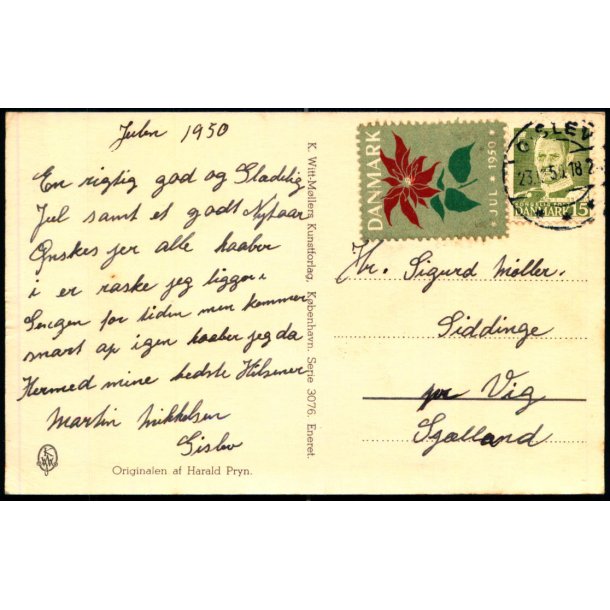 Julen 1950
En rigtig god og Glædelig
Jul samt et godt Nytaar
Ønskes jer alle haaber
i er raske jeg ligger i
Sengen for tiden men kommer
snart op igen haaber jeg da
Hermed mine bedste Hilsener
Martin Mikkelsen
Gislev
Originalen af Harald Pryn.
K. Witt-Møllers Kunstforlag, København. Serie 3076. Eneret.
DANMARK
JUL ★ 1950 ★
DANMARK 15
Hr. Sigurd Møller.
Siddinge
pr Vig
Sjælland